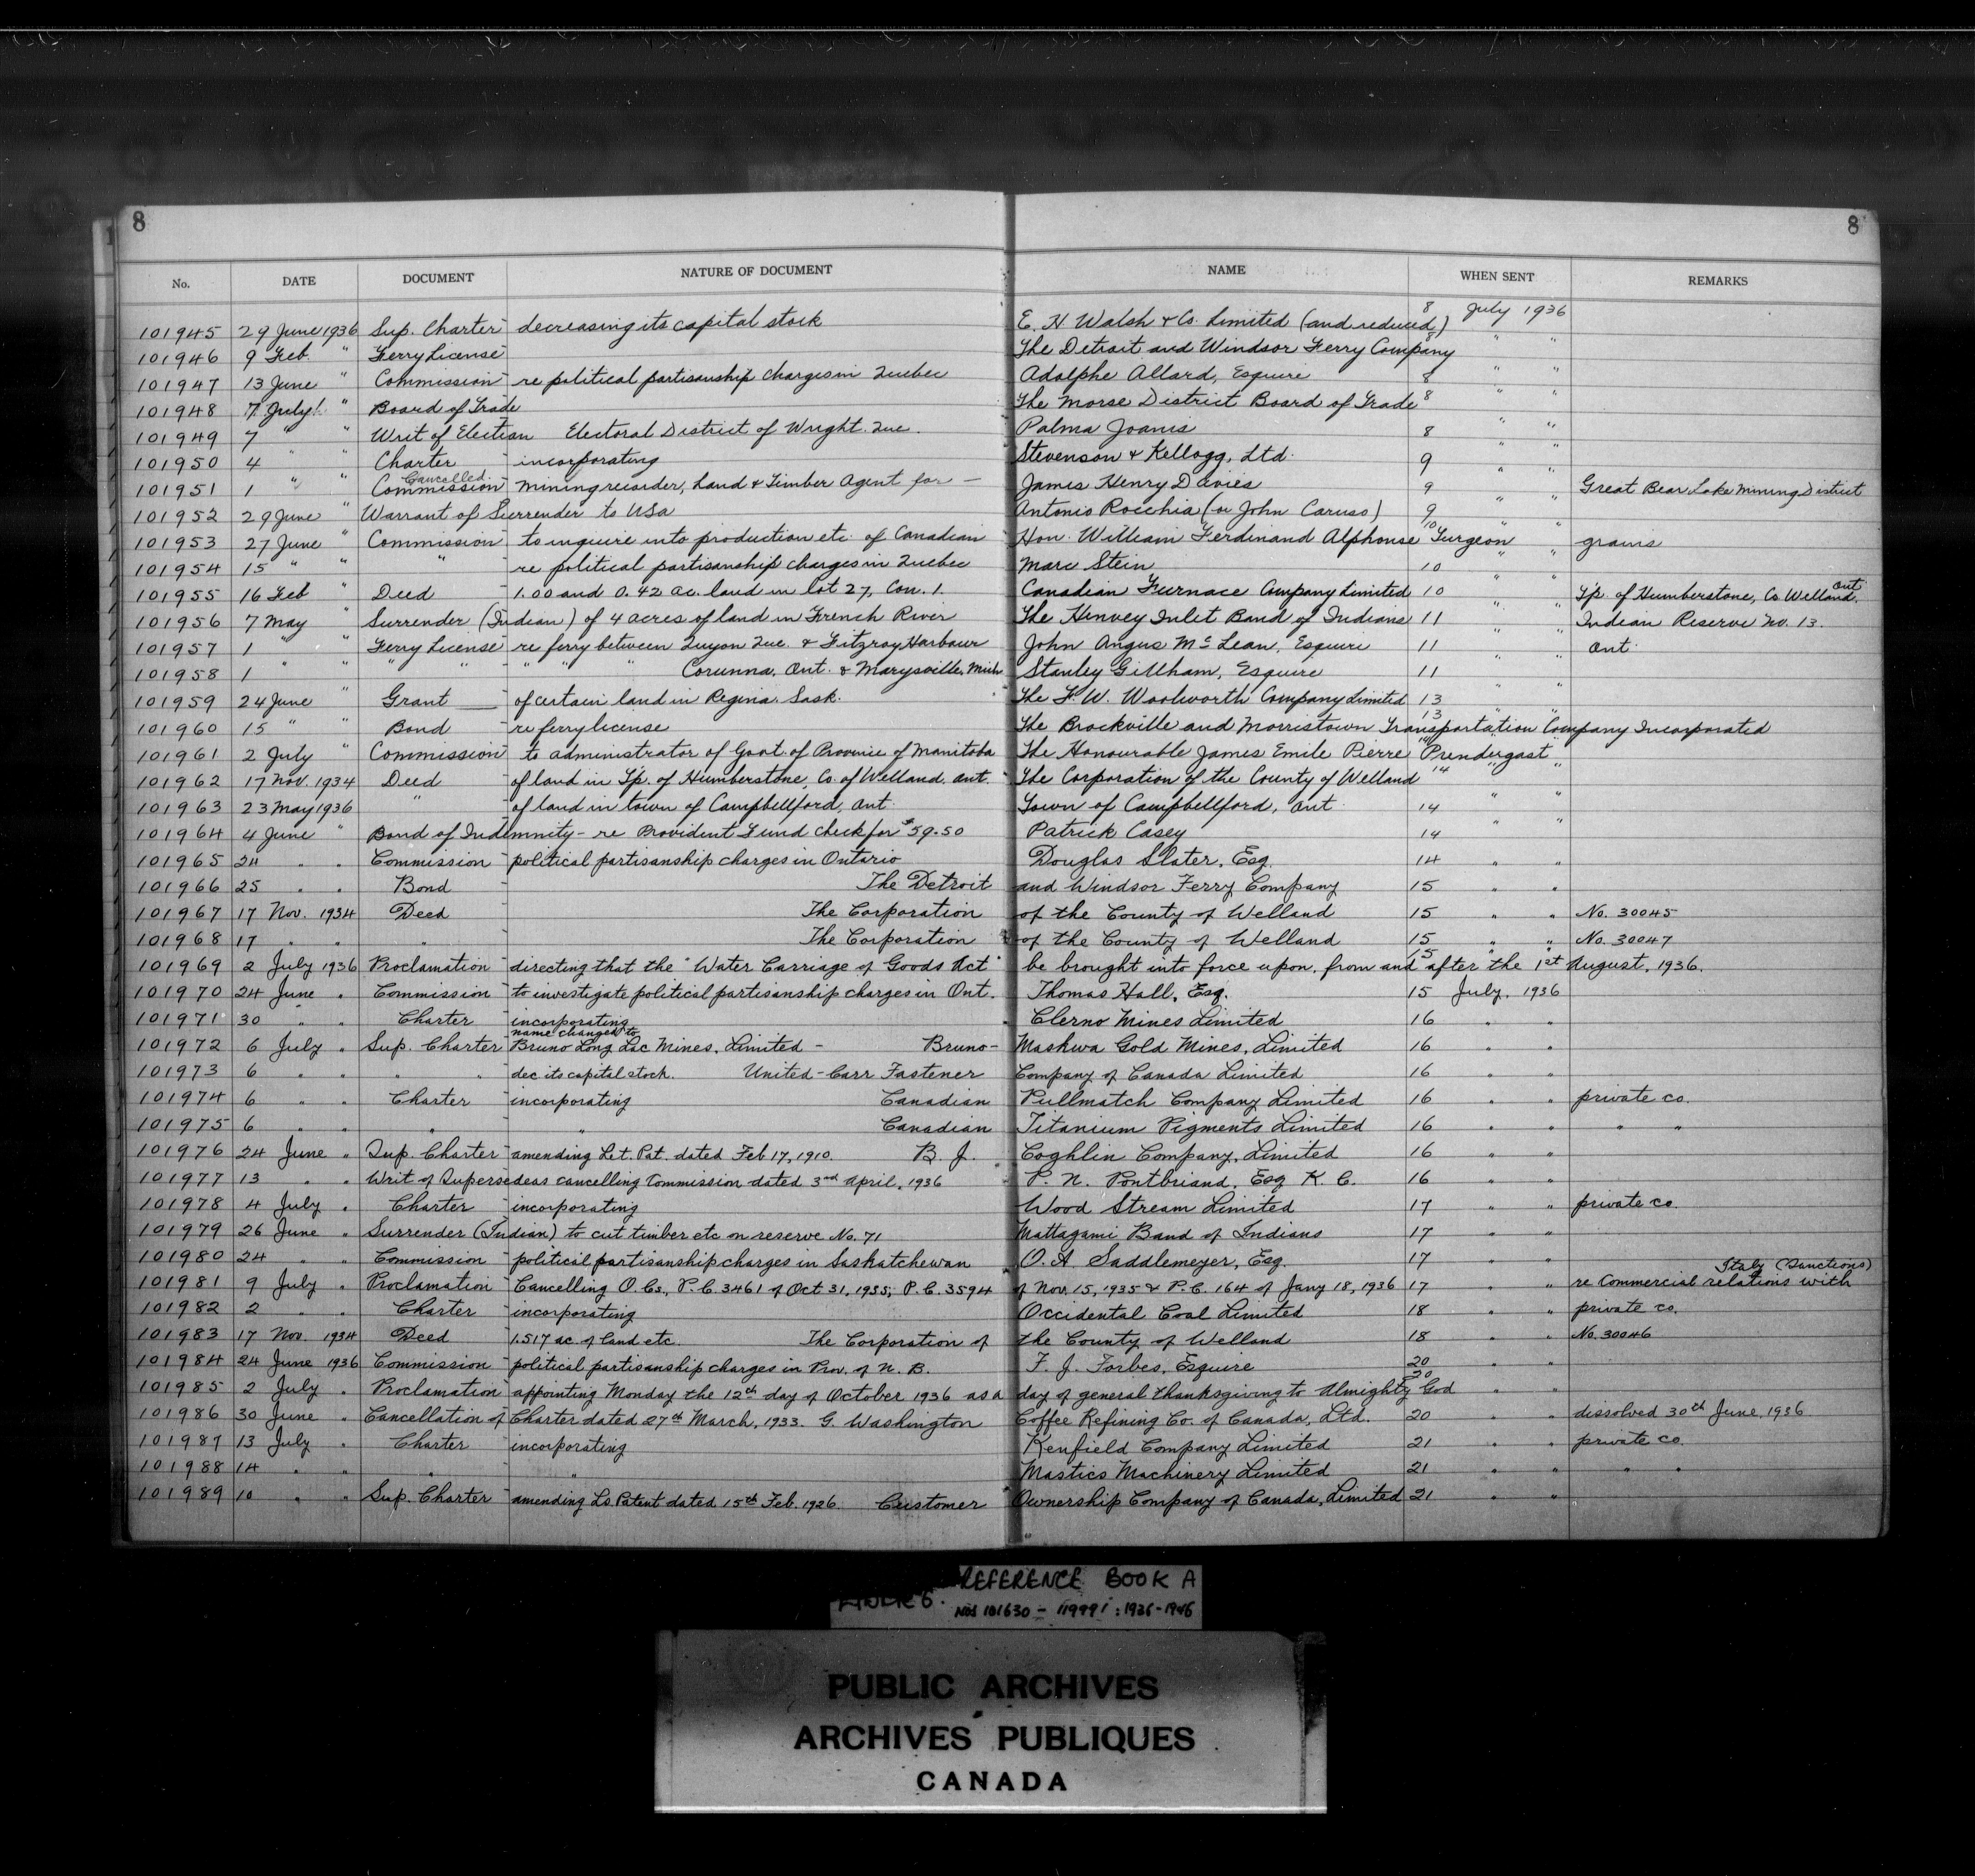 8 8
No. DATE DOCUMENT NATURE OF DOCUMENT NAME WHEN SENT REMARKS
101945 29 June 1936 Sup. Charter - decreasing its capital stock E. H. Walsh & Co. Limited (and reduced) 8 July 1936
101946 9 Feb. " Ferry License - The Detroit and Windsor Ferry Company " "
101947 13 June " Commission - re political partisanship charges in Quebec Adolphe Allard, Esquire 8 " "
101948 7 July " Board of Trade The Morse District Board of Trade 8 " "
101949 7 " " Writ of Election Electoral District of Wright. Que. Palma Joanis 8 " "
101950 4 " " Charter - incorporating Stevenson & Kellogg, Ltd. 9 " "
101951 1 " " Cancelled Commission - Mining recorder, Land & Timber Agent for — James Henry Davies 9 " " Great Bear Lake Mining District
101952 29 June " Warrant of Surrender to USA Antonio Rocchia (or John Caruso) 9 " "
101953 27 June " Commission - to inquire into production etc. of Canadian Hon. William Ferdinand Alphonse Turgeon 10 " " grains
101954 15 " " " re political partisanship charges in Quebec Marc Stein 10 " "
101955 16 Feb " Deed - 1.00 and 0.42 ac. land in lot 27, Con. 1. Canadian Furnace Company Limited 10 " " Tp. of Humberstone, Co Welland. Ont
101956 7 May " Surrender (Indian) of 4 acres of land in French River The Henvey Inlet Band of Indians 11 " " Indian Reserve No. 13.
101957 1 " " Ferry License - re ferry between Quyon Que. & Fitzroy Harbour John Angus McLean, Esquire 11 " " Ont.
101958 1 " " " " " " " Corunna, Ont. & Marysville, Mich Stanley Gillham, Esquire 11 " "
101959 24 June " Grant — of certain land in Regina, Sask. The F. W. Woolworth Company Limited 13 " "
101960 15 " " Bond - re ferry license The Brockville and Morristown Transportation Company Incorporated 13 " "
101961 2 July " Commission - to administrator of Govt. of Province of Manitoba The Honourable James Emile Pierre Prendergast 14 " "
101962 17 Nov. 1934 Deed - of land in Tp. of Humberstone, Co. of Welland. Ont. The Corporation of the County of Welland 14 " "
101963 23 May 1936 " - of land in town of Campbellford, Ont. Town of Campbellford, Ont 14 " "
101964 4 June " Bond of Indemnity - re Provident Fund check for $59.50 Patrick Casey 14 " "
101965 24 " " Commission - political partisanship charges in Ontario Douglas Slater, Esq. 14 " "
101966 25 " " Bond - The Detroit and Windsor Ferry Company 15 " "
101967 17 Nov. 1934 Deed - The Corporation of the County of Welland 15 " " No. 30045
101968 17 " " " - The Corporation of the County of Welland 15 " " No. 30047
101969 2 July 1936 Proclamation - directing that the "Water Carriage of Goods Act" be brought into force upon, from and after the 1st August, 1936. 15 " "
101970 24 June " Commission - to investigate political partisanship charges in Ont. Thomas Hall, Esq. 15 July, 1936
101971 30 " " Charter - incorporating Clerno Mines Limited 16 " "
101972 6 July " Sup. Charter - name changed to Bruno Long Lac Mines, Limited - Bruno- Mashwa Gold Mines, Limited 16 " "
101973 6 " " " " dec its capital stock. United-Carr Fastener Company of Canada Limited 16 " "
101974 6 " " Charter - incorporating Canadian Pullmatch Company Limited 16 " " private co.
101975 6 " " " - " Canadian Titanium Pigments Limited 16 " " " "
101976 24 June " Sup. Charter - amending Let. Pat. dated Feb 17, 1910. B. J. Coghlin Company, Limited 16 " "
101977 13 " " Writ of Supersedeas cancelling Commission dated 3rd April, 1936 P. N. Pontbriand, Esq K. C. 16 " "
101978 4 July " Charter - incorporating Wood Stream Limited 17 " " private co.
101979 26 June " Surrender (Indian) to cut timber etc on reserve No. 71 Mattagami Band of Indians 17 " "
101980 24 " " Commission - political partisanship charges in Saskatchewan O. A Saddlemeyer, Esq. 17 " "
101981 9 July " Proclamation - Cancelling O. Cs., P.C. 3461 of Oct 31, 1935; P.C. 3594 of Nov. 15, 1935 & P.C. 164 of Jany 18, 1936 17 " " re Commercial relations with Italy (Sanctions)
101982 2 " " Charter - incorporating Occidental Coal Limited 18 " " private co.
101983 17 Nov. 1934 Deed - 1.517 ac. of land etc. The Corporation of the County of Welland 18 " " No. 30046
101984 24 June 1936 Commission - political partisanship charges in Prov. of N. B. F. J. Forbes, Esquire 20 " "
101985 2 July " Proclamation - appointing Monday the 12th day of October 1936 as a day of general thanksgiving to Almighty God 20 " "
101986 30 June " Cancellation of Charter dated 27th March, 1933. G. Washington Coffee Refining Co. of Canada, Ltd. 20 " " dissolved 30th June, 1936
101987 13 July " Charter - incorporating Kenfield Company Limited 21 " " private co.
101988 14 " " " " Mastics Machinery Limited 21 " " " "
101989 10 " " Sup. Charter - amending Ls Patent dated 15th Feb. 1926. Customer Ownership Company of Canada, Limited 21 " "
REFERENCE BOOK A
Nos 101630 - 119991 : 1936-1946
PUBLIC ARCHIVES
ARCHIVES PUBLIQUES
CANADA